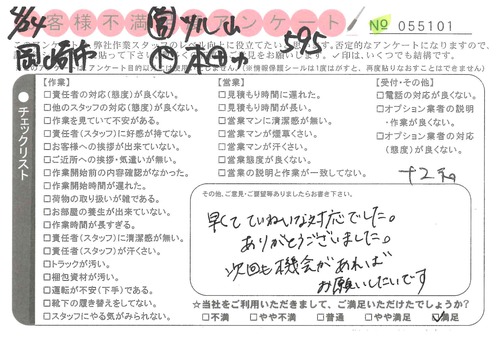 お客様不満足アンケート
No 055101
4/24
岡崎市
505
弊社作業スタッフのレベル向上に役立てたい
否定的なアンケートになりますので、
お見せ願います。✓印は、いくつでも結構です。
(※情報保護シールは1度はがすと、再度貼りなおすことはできません)
チェックリスト
【作業】
□責任者の対応(態度)が良くない。
□他のスタッフの対応(態度)が良くない。
□作業を見ていて不安がある。
□責任者(スタッフ)に好感が持てない。
□お客様への挨拶が出来ていない。
□ご近所への挨拶・気遣いが無い。
□作業開始前の内容確認がなかった。
□作業開始時間が遅れた。
□荷物の取り扱いが雑である。
□お部屋の養生が出来ていない。
□作業時間が長すぎる。
□責任者(スタッフ)に清潔感が無い。
□責任者(スタッフ)が汗くさい。
□トラックが汚い。
□梱包資材が汚い。
□運転が不安(下手)である。
□靴下の履き替えをしてない。
□スタッフにやる気がみられない。
【営業】
□見積もり時間に遅れた。
□見積もり時間が長い。
□営業マンに清潔感が無い。
□営業マンが煙草くさい。
□営業マンが汗くさい。
□営業態度が良くない。
□営業の説明と作業が一致してない。
【受付・その他】
□電話の対応が良くない。
□オプション業者の説明・作業が良くない。
□オプション業者の対応(態度)が良くない。
その他、ご意見・ご要望等ありましたらお書き下さい。
早くてていねいな対応でした。
ありがとうございました。
次回も機会があれば
お願いしたいです
☆当社をご利用いただきまして、ご満足いただけたでしょうか?
□不満 □やや不満 □普通 □やや満足 ☑満足